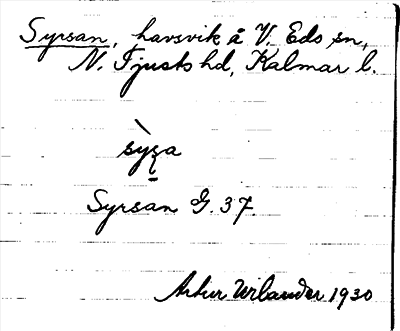 Syrsan, havsvik å V. Eds sn,
N. Tjusts hd, Kalmar l.
Syrsan G. 37.
Artur Wilander 1930